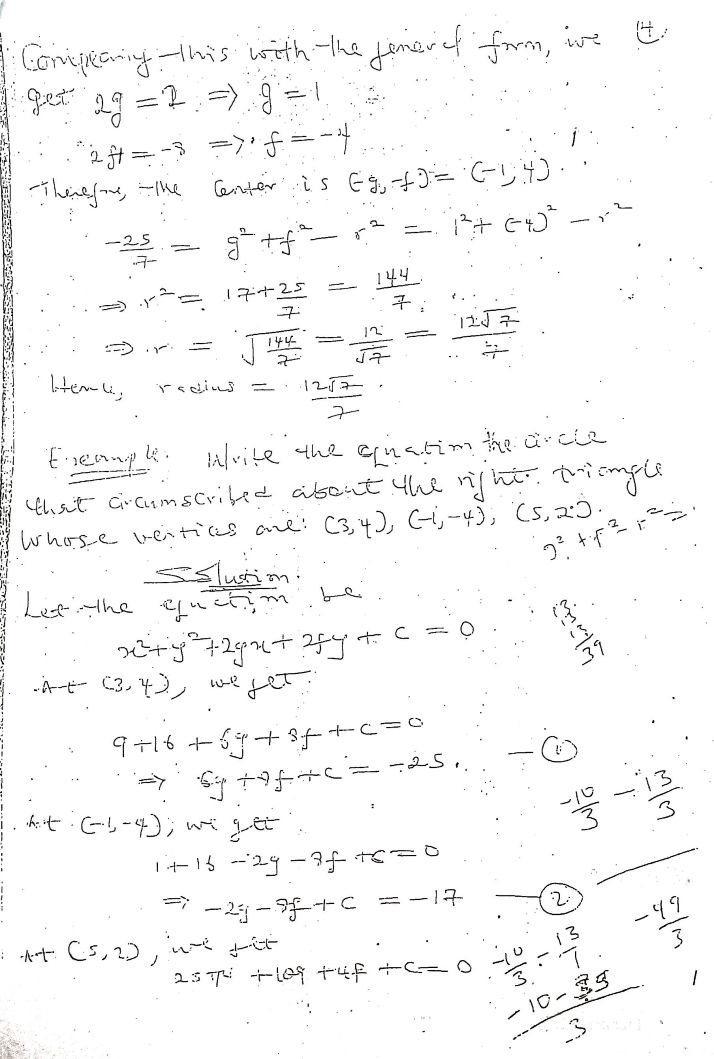 Comparing this with the general form, we 4
get 2g = 2 => g = 1
2f = -8 => f = -4
Therefore, the Center is (-g, -f) = (-1, 4).
-25/7 = g² + f² - r² = 1² + (-4)² - r²
=> r² = 17 + 25/7 = 144/7
=> r = √144/7 = 12/√7 = 12√7/7
Hence, radius = 12√7/7.
Example. Write the equation the circle
that circumscribed about the right triangle
whose vertices are: (3,4), (-1,-4), (5,2).
g² + f² - r² =
Solution.
Let the equation be
x² + y² + 2gx + 2fy + c = 0
13
39
At (3,4), we get
9 + 16 + 6g + 8f + c = 0
=> 6g + 8f + c = -25. — (1)
-10/3 - 13/3
At (-1,-4), we get
1 + 16 - 2g - 8f + c = 0
=> -2g - 8f + c = -17 — (2)
-49/3
At (5,2), we get
25 + 4 + 10g + 4f + c = 0
-10/3 - 13/1
-10-39/3